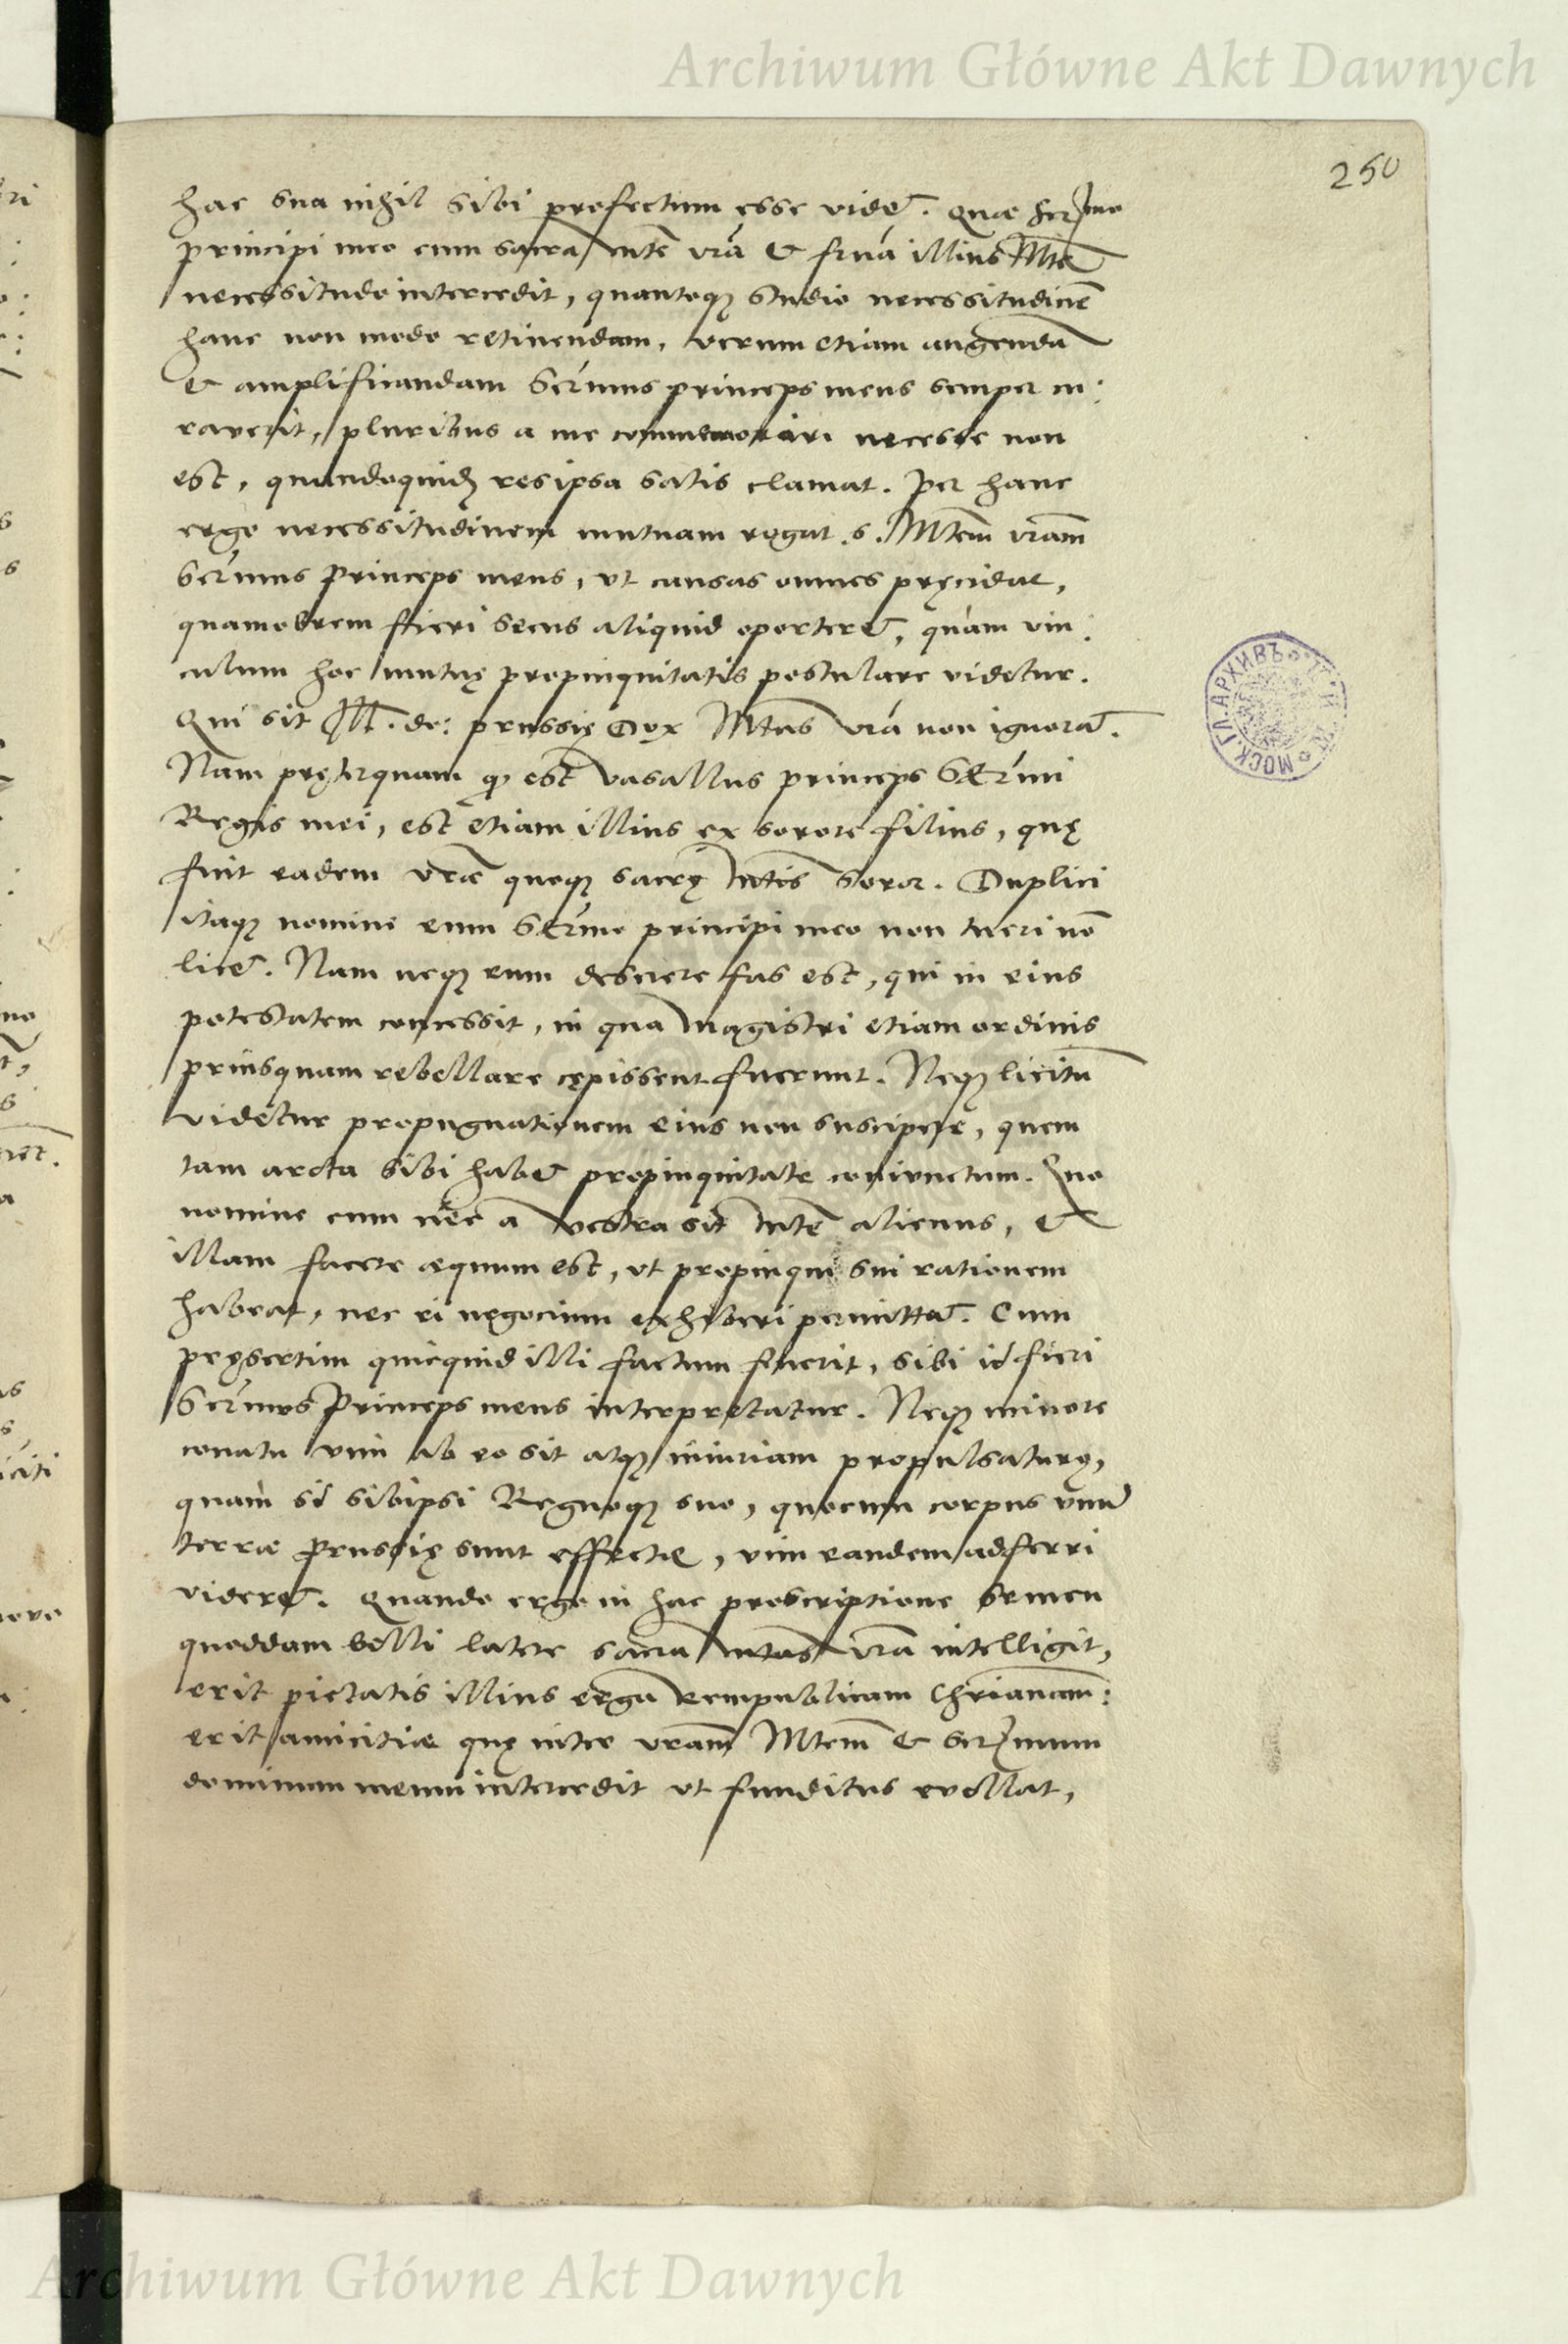 Archiwum Główne Akt Dawnych
250
hac sua nihil sibi profectum esse videt. Quae Serᵐᵒ
principi meo cum sacra Mte vra et frna illius Mte
necessitudo intercedit, quantoq studio necessitudinē
hanc non modo retinendam, verum etiam augendā
et amplificandam Sermus princeps meus semper cu:
raverit, pluribus a me commemorari necesse non
est, quandoquidē res ipsa satis clamat. Per hanc
ergo necessitudinem mutuam rogat s. Mtem vram
Sermus Princeps meus, ut causas omnes pręcidat,
quamobrem fieri secus aliquid oporteret, quàm vin:
culum hoc mutuę propinquitatis postulare videtur.
Qui sit Ill. do: prussię Dux Mtas vra non ignorat.
Nam pręterquam q est vasallus princeps Sermi
Regis mei, est etiam illius ex sorore filius, quę
fuit eadem vrae quoq sacrę Mtis soror. Duplici
itaq nomine eum Sermo principi meo non tueri nō
licet. Nam neq eum deserere fas est, qui in eius
potestatem concessit, in qua magistri etiam ordinis
priusquam rebellare cępissent fuerunt. Neq licitū
videtur propugnationem eius non suscipere, quem
tam arcta sibi habet propinquitate coniunctum. Quo
nomine cum nec a vestra sit Mte alienus, et
illam facere aequum est, ut propinqui sui rationem
habeat, nec ei negocium exhiberi permittat. Cum
pręsertim quicquid illi factum fuerit, sibi id fieri
Sermus Princeps meus interpretatur. Neq minore
conatu vim ab eo sit atq iniuriam propulsaturę,
quàm si sibiipsi Regnoq suo, quocum corpus unū
terrae Prussię sunt effectae, vim eandem adferri
videret. Quando ergo in hac proscriptione semen
quoddam belli latere sacra Mtas vra intelligit,
erit pietatis illius erga Rempublicam Chrianam:
erit amicitiae quę inter vram Mtem et Serᵐum
dominum meum intercedit ut funditus evellat,
МОСК. ГЛ. АРХИВЪ
Archiwum Główne Akt Dawnych